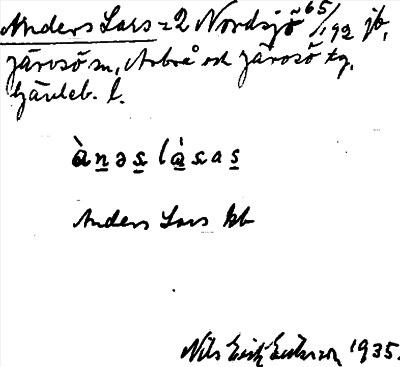 Anders Lars = 2 Nordsjö 65/192 jb,
Järvsö sn, Arbrå och Järvsö tg,
Gävleb. l.
à̱ṉəs̱ lá̱sas̱
Anders Lars kb
Nils Erik Eriksson 1935.